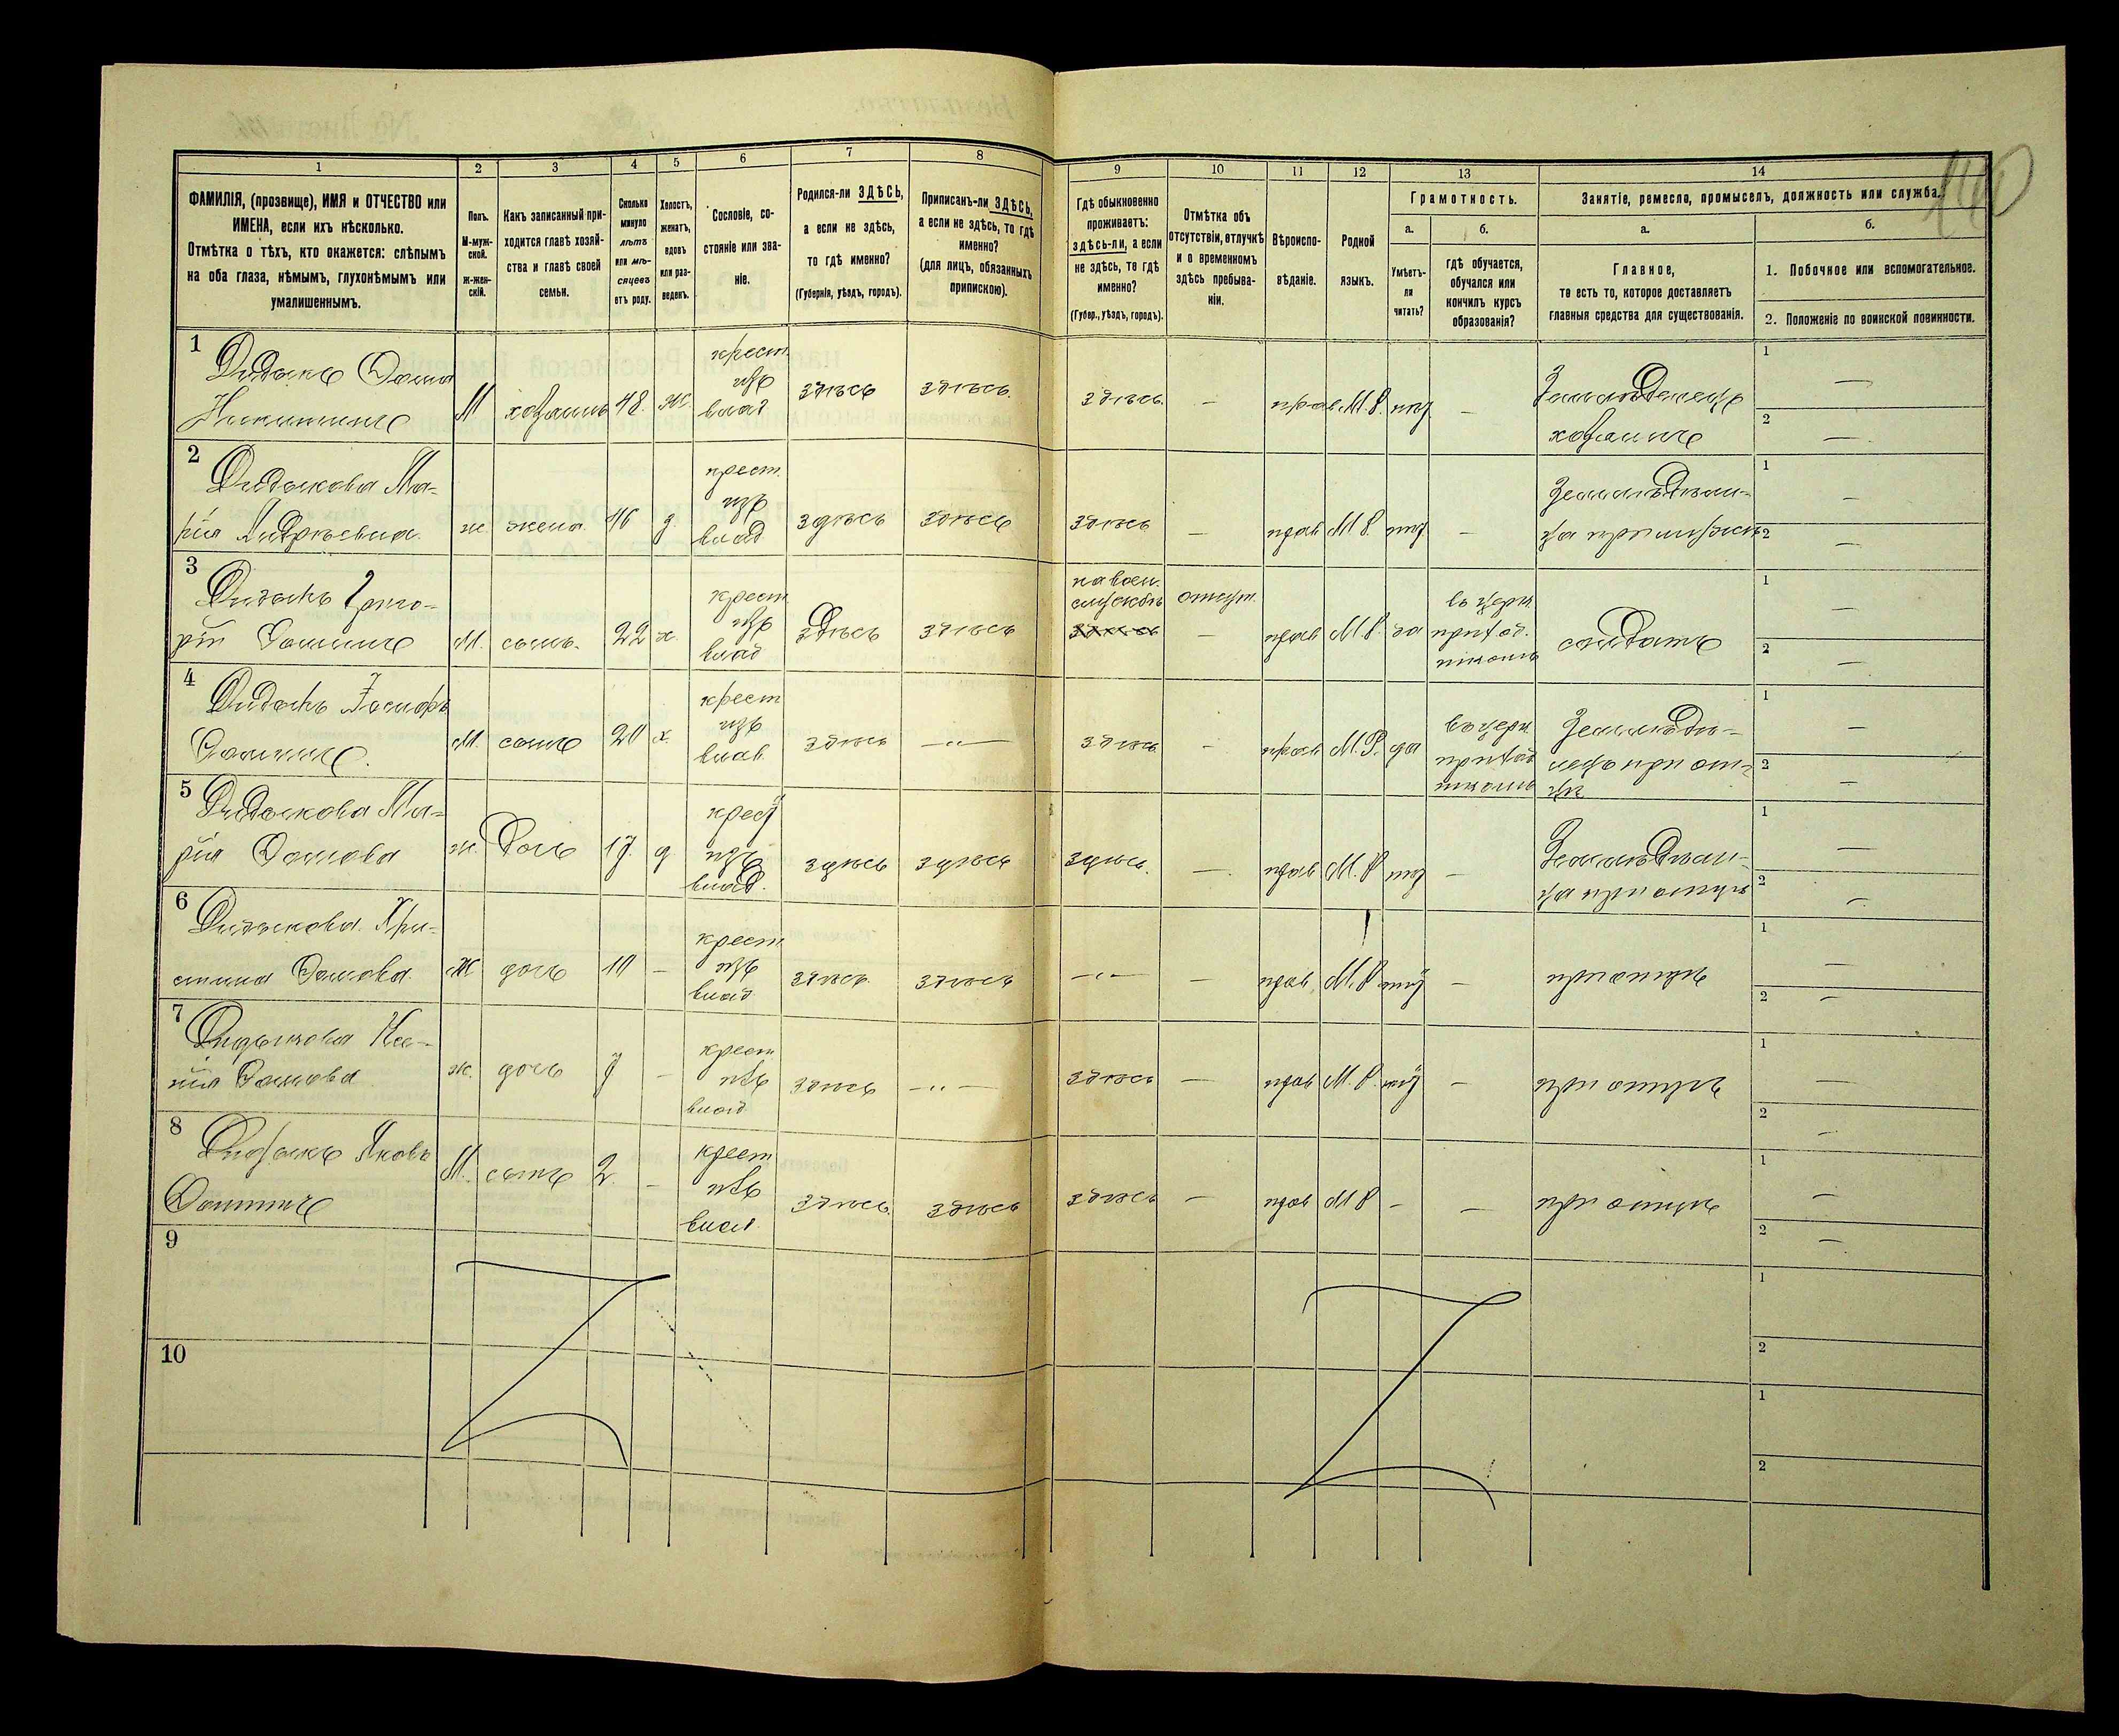 140
1
2
3
4
5
6
7
8
9
10
11
12
13
14
ФАМИЛІЯ, (прозвище), ИМЯ и ОТЧЕСТВО или
ИМЕНА, если ихъ нѣсколько.
Отмѣтка о тѣхъ, кто окажется: слѣпымъ
на оба глаза, нѣмымъ, глухонѣмымъ или
умалишеннымъ.
Полъ.
М-муж-
ской.
Ж-жен-
скій.
Какъ записанный при-
ходится главѣ хозяй-
ства и главѣ своей
семьи.
Сколько
минуло
лѣтъ
или мѣ-
сяцевъ
отъ роду.
Холостъ,
женатъ,
вдовъ
или раз-
веденъ.
Сословіе, со-
стояніе или зва-
ніе.
Родился-ли ЗДѢСЬ,
а если не здѣсь,
то гдѣ именно?
(Губернія, уѣздъ, городъ).
Приписанъ-ли ЗДѢСЬ,
а если не здѣсь, то гдѣ
именно?
(для лицъ, обязанныхъ
припискою).
Гдѣ обыкновенно
проживаетъ:
здѣсь-ли, а если
не здѣсь, то гдѣ
именно?
(Губер., уѣздъ, городъ).
Отмѣтка объ
отсутствіи, отлучкѣ
и о временномъ
здѣсь пребыва-
ніи.
Вѣроиспо-
вѣданіе.
Родной
языкъ.
Грамотность.
а.
Умѣетъ-
ли
читать?
б.
гдѣ обучается,
обучался или
кончилъ курсъ
образованія?
Занятіе, ремесло, промыселъ, должность или служба.
а.
Главное,
то есть то, которое доставляетъ
главныя средства для существованія.
б.
1. Побочное или вспомогательное.
2. Положеніе по воинской повинности.
1
Дидыкъ Фома
Никитинъ
М
хозяинъ
48.
ж.
крест.
изъ
влад
здѣсь
здѣсь.
здѣсь.
—
прав
М.Р.
нѣт
—
Земледѣлецъ
хозяинъ
1 —
2 —
2
Дидыкова Ма-
рія Андреевна.
ж.
жена.
46
з.
крест.
изъ
влад
здѣсь
здѣсь
здѣсь
—
прав
М.Р.
нѣт
—
1 —
2 —
3
Дидыкъ Григо-
рій Фоминъ
М.
сынъ.
22
х.
крест.
изъ
влад
здѣсь
здѣсь
на воен.
службѣ
здѣсь
отсут.
—
прав
М.Р.
да
въ церк.
приход.
школѣ
солдатъ
1 —
2 —
4
Дидыкъ
Фоминъ.
М.
сынъ
20
х.
крест
изъ
влад
здѣсь
—„—
здѣсь
—
прав
М.Р.
да
въ церк
приход
школѣ
Земледѣ-
лецъ при от-
цѣ
1 —
2 —
5
Дидыкова Ма-
рія Фомова
ж.
дочь
изъ
влад.
здѣсь
здѣсь
здѣсь.
—
прав
М.Р
нѣт
—
1 —
2 —
6
Дидыкова Хри-
стина Фомова.
Ж
дочь
10
—
крест.
изъ
влад
здѣсь.
здѣсь
—„—
—
прав
М.Р
нѣт
—
при отцѣ
1 —
2 —
7
Дидыкова Ксе-
нія Фомова
ж.
дочь
—
крест.
изъ
влад
здѣсь
—„—
здѣсь
—
прав
М.Р.
нѣт
—
при отцѣ
1 —
2 —
8
Дидыкъ Яковъ
Фоминъ
М.
сынъ
2.
—
крест
изъ
влад.
здѣсь.
здѣсь
здѣсь
—
прав
М Р
—
—
при отцѣ
1 —
2 —
9
1
2
10
1
2